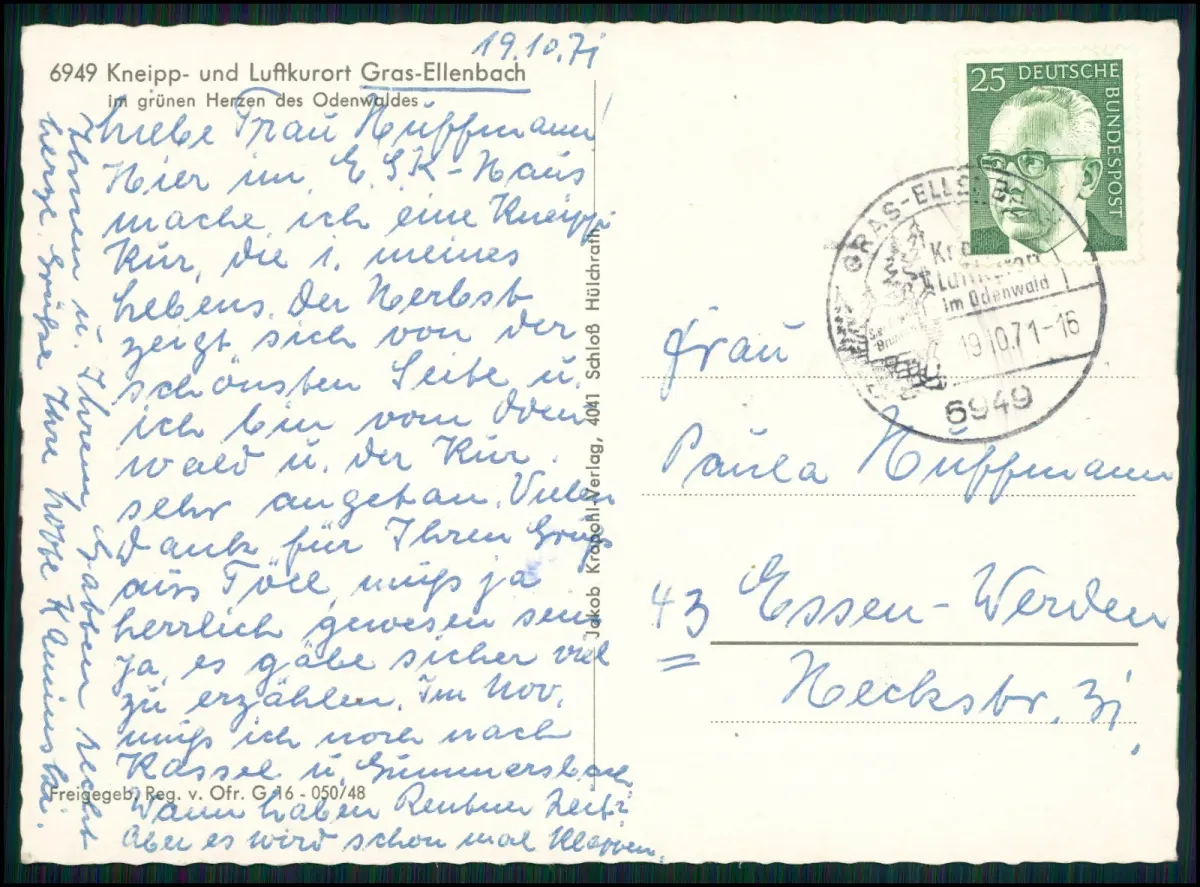 19.10.71
6949 Kneipp- und Luftkurort Gras-Ellenbach
im grünen Herzen des Odenwaldes
Liebe Frau Hüffmann!
Hier im E.S.K-Haus
mache ich eine Kneipp-
Kur, die 1. meines
Lebens. Der Herbst
zeigt sich von der
schönsten Seite u.
ich bin vom Oden
wald u. der Kur
sehr angetan. Vielen
Dank für Ihren Gruß
aus Töll, muß ja
herrlich gewesen sein
ja, es gäbe sicher viel
zu erzählen. Im Nov.
muß ich noch nach
Kassel u. Gummersbach
Wann haben Rentner Zeit?
Aber es wird schon mal klappen.
Ihnen u. Ihrem recht
herzl. Grüße Ihre
Freigegeb. Reg. v. Ofr. G 16 - 050/48
Jakob Krapohl-Verlag, 4041 Schloß Hülchrath
25 DEUTSCHE
BUNDESPOST
GRAS-ELLENB
Luftkurort
im Odenwald
19.10.71-16
6949
Frau
Paula Hüffmann
43 Essen-Werden
Heckstr. 31